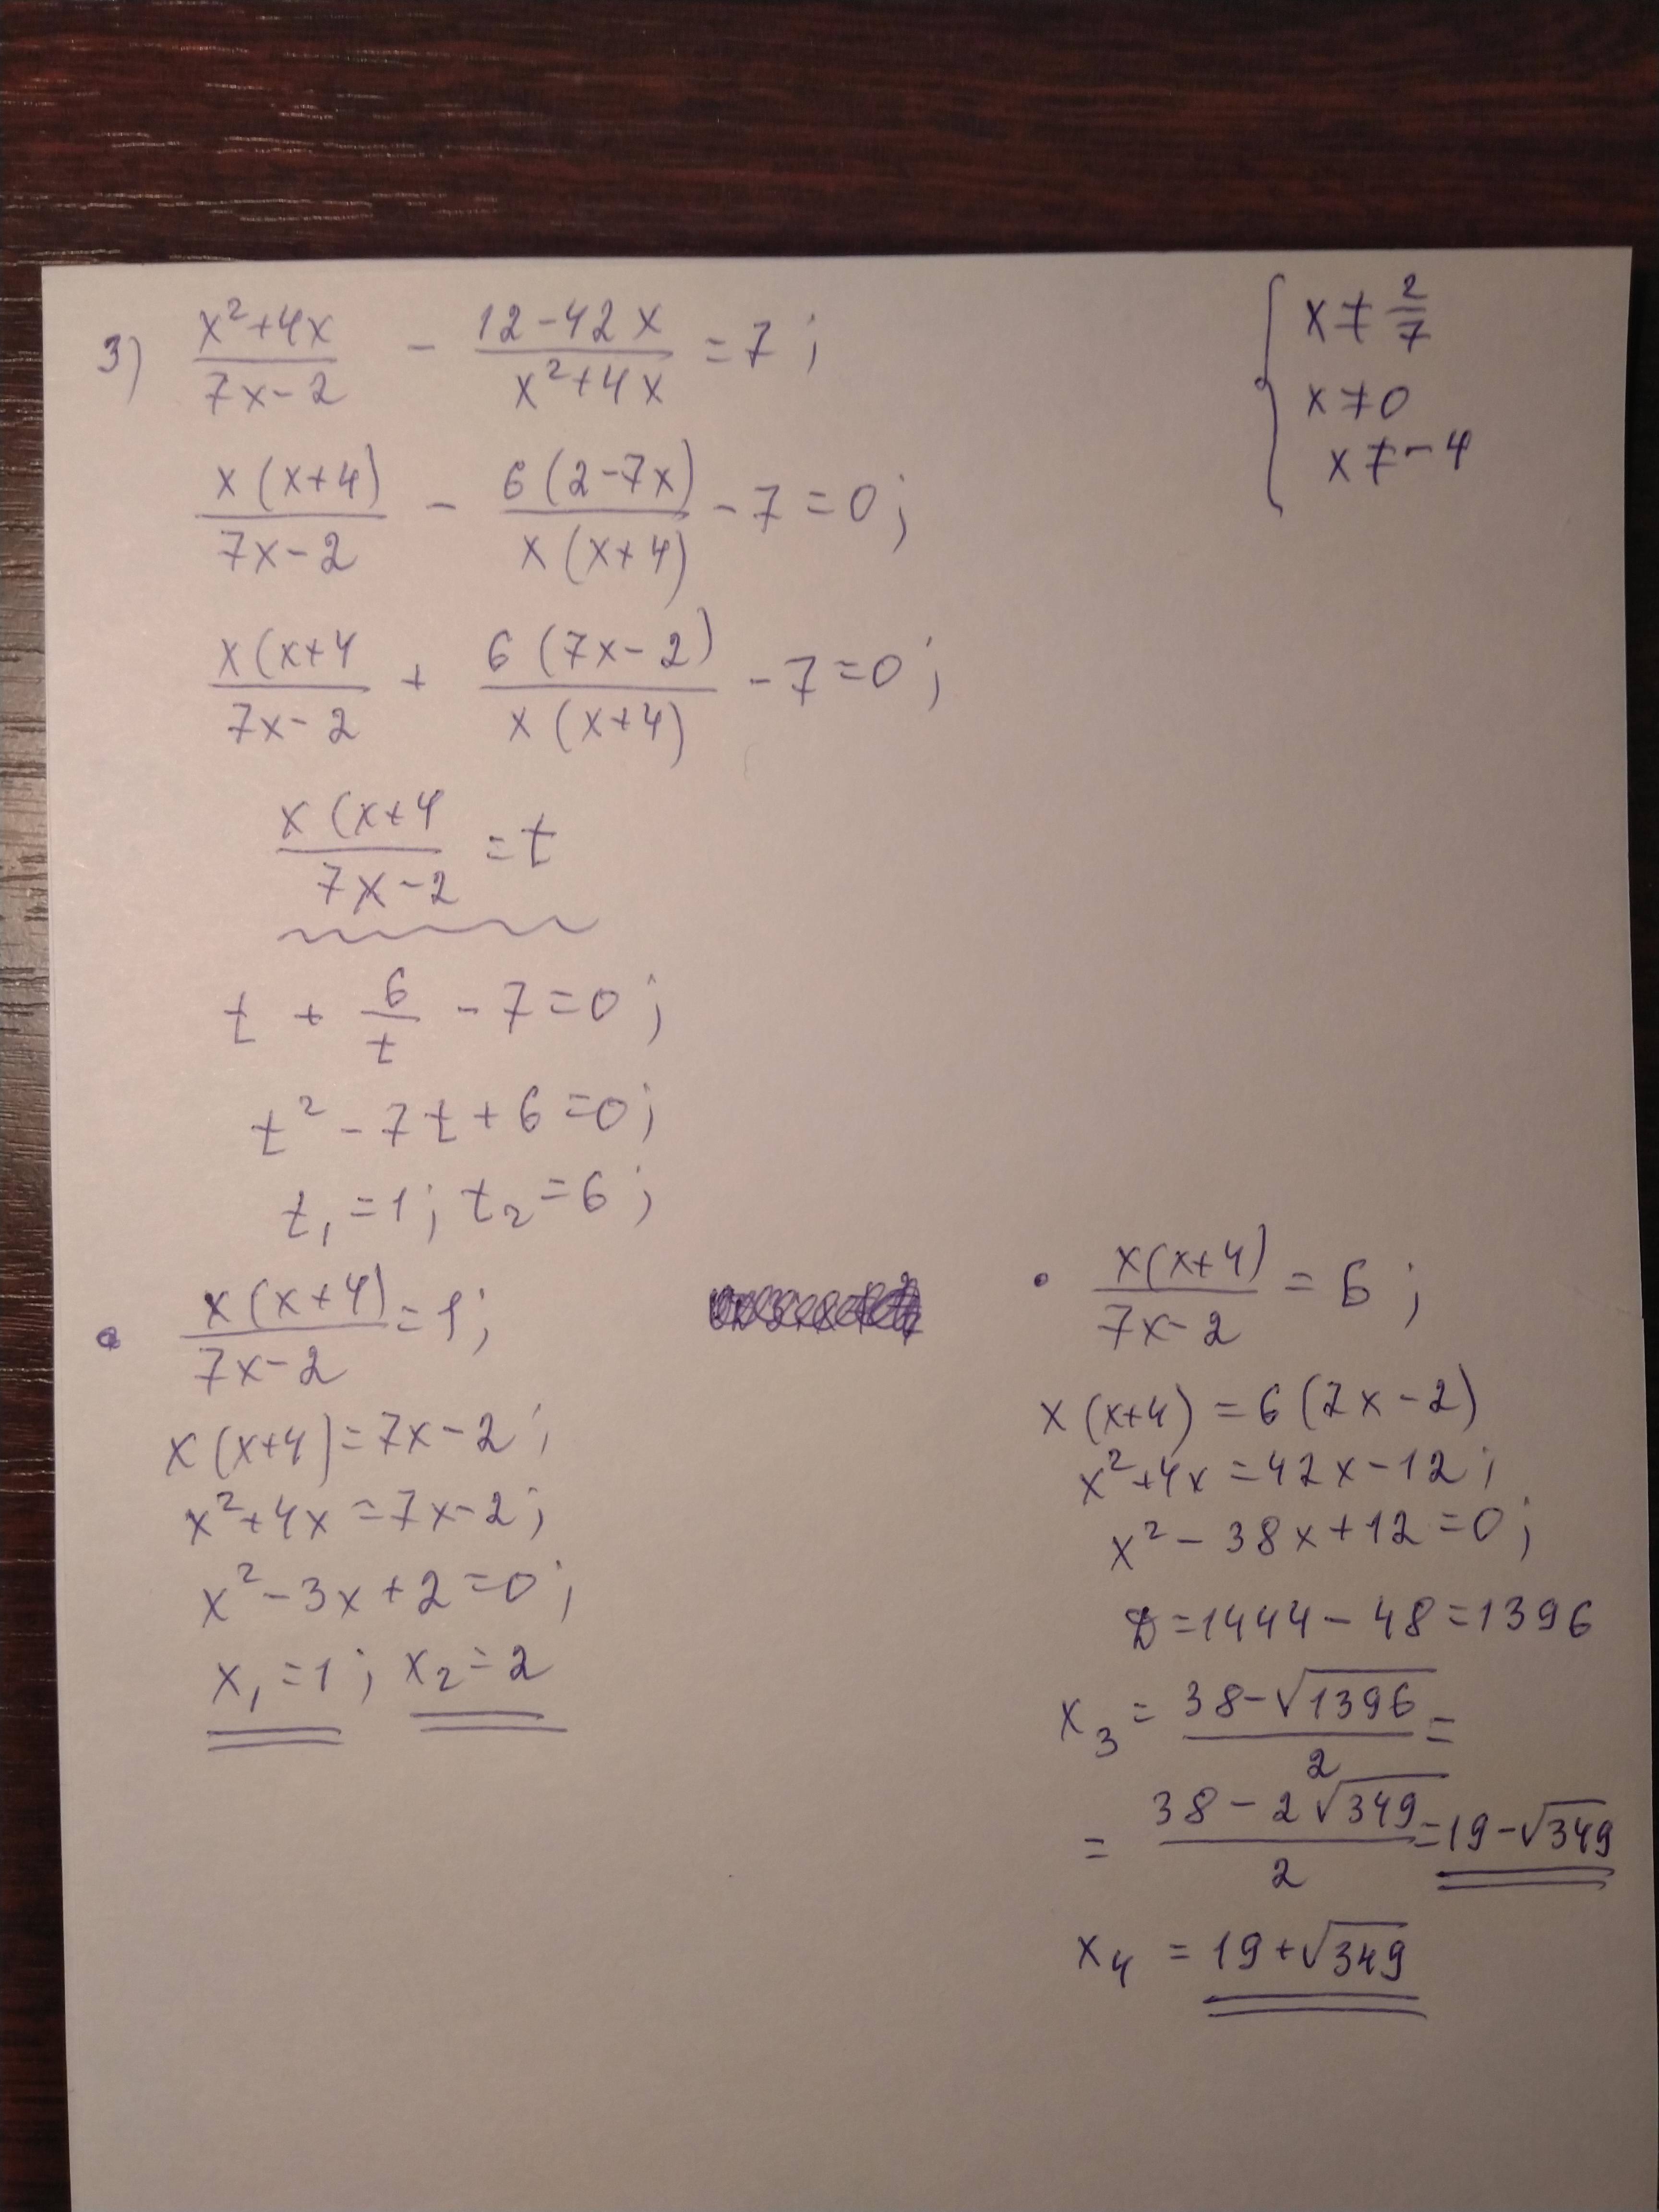 3) (x²+4x)/(7x-2) - (12-42x)/(x²+4x) = 7;
{ x ≠ 2/7
x ≠ 0
x ≠ -4
x(x+4)/(7x-2) - 6(2-7x)/(x(x+4)) - 7 = 0;
x(x+4/(7x-2) + 6(7x-2)/(x(x+4)) - 7 = 0;
x(x+4/(7x-2) = t
t + 6/t - 7 = 0;
t² - 7t + 6 = 0;
t₁ = 1; t₂ = 6;
• x(x+4)/(7x-2) = 1;
x(x+4) = 7x-2;
x²+4x = 7x-2;
x² - 3x + 2 = 0;
x₁ = 1; x₂ = 2
• x(x+4)/(7x-2) = 6;
x(x+4) = 6(7x-2)
x²+4x = 42x-12;
x² - 38x + 12 = 0;
D = 1444 - 48 = 1396
x₃ = (38-√1396)/2 =
= (38-2√349)/2 = 19-√349
x₄ = 19+√349